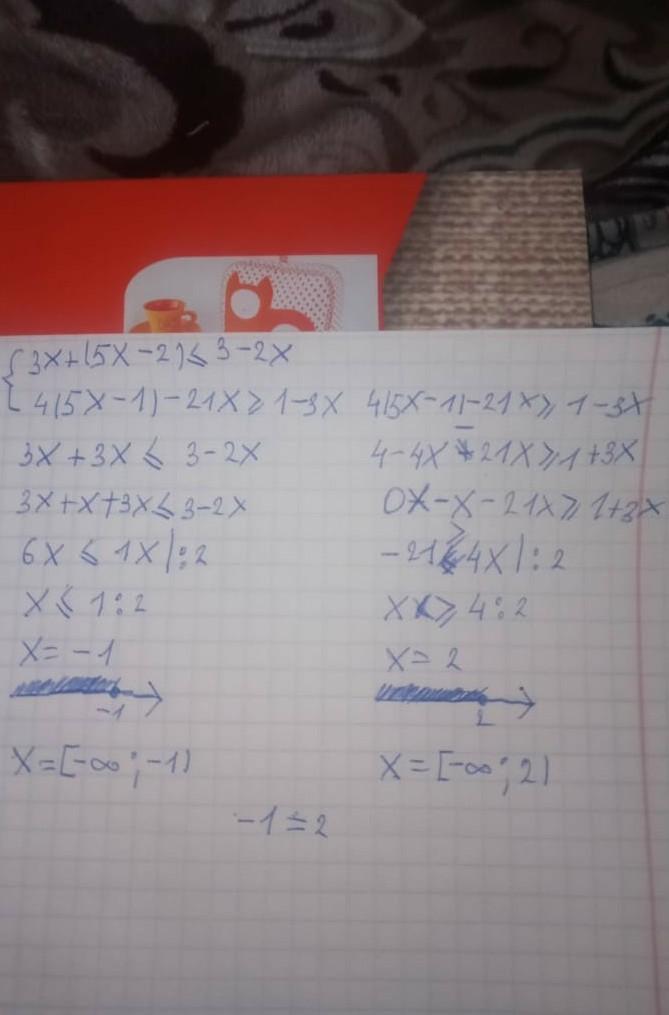 {3x+(5x-2)≤3-2x
4(5x-1)-21x≥1-3x
3x+3x≤ 3-2x
3x+x+3x≤3-2x
6x ≤ 1x|:2
x ≤ 1:2
x= -1
-1
x=[-∞;-1)
4(5x-1)-21x≥1-3x
4-4x 21x≥1+3x
0x-x-21x≥1+3x
-21 4x|:2
x ≥ 4:2
x= 2
2
x=[-∞;2)
-1≤2